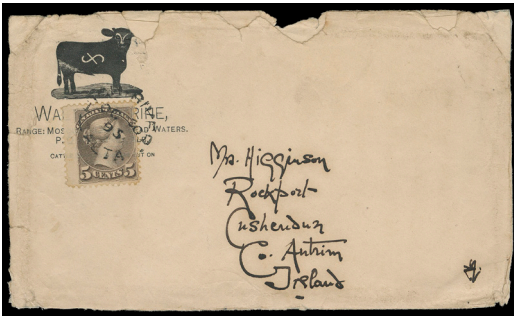 WA RINE,
RANGE: MOS D WATERS.
P.
CAT ON
95
TA
5 CENTS 5
Mrs. Higginson
Rockport
Cushendun
Co. Antrim
Ireland